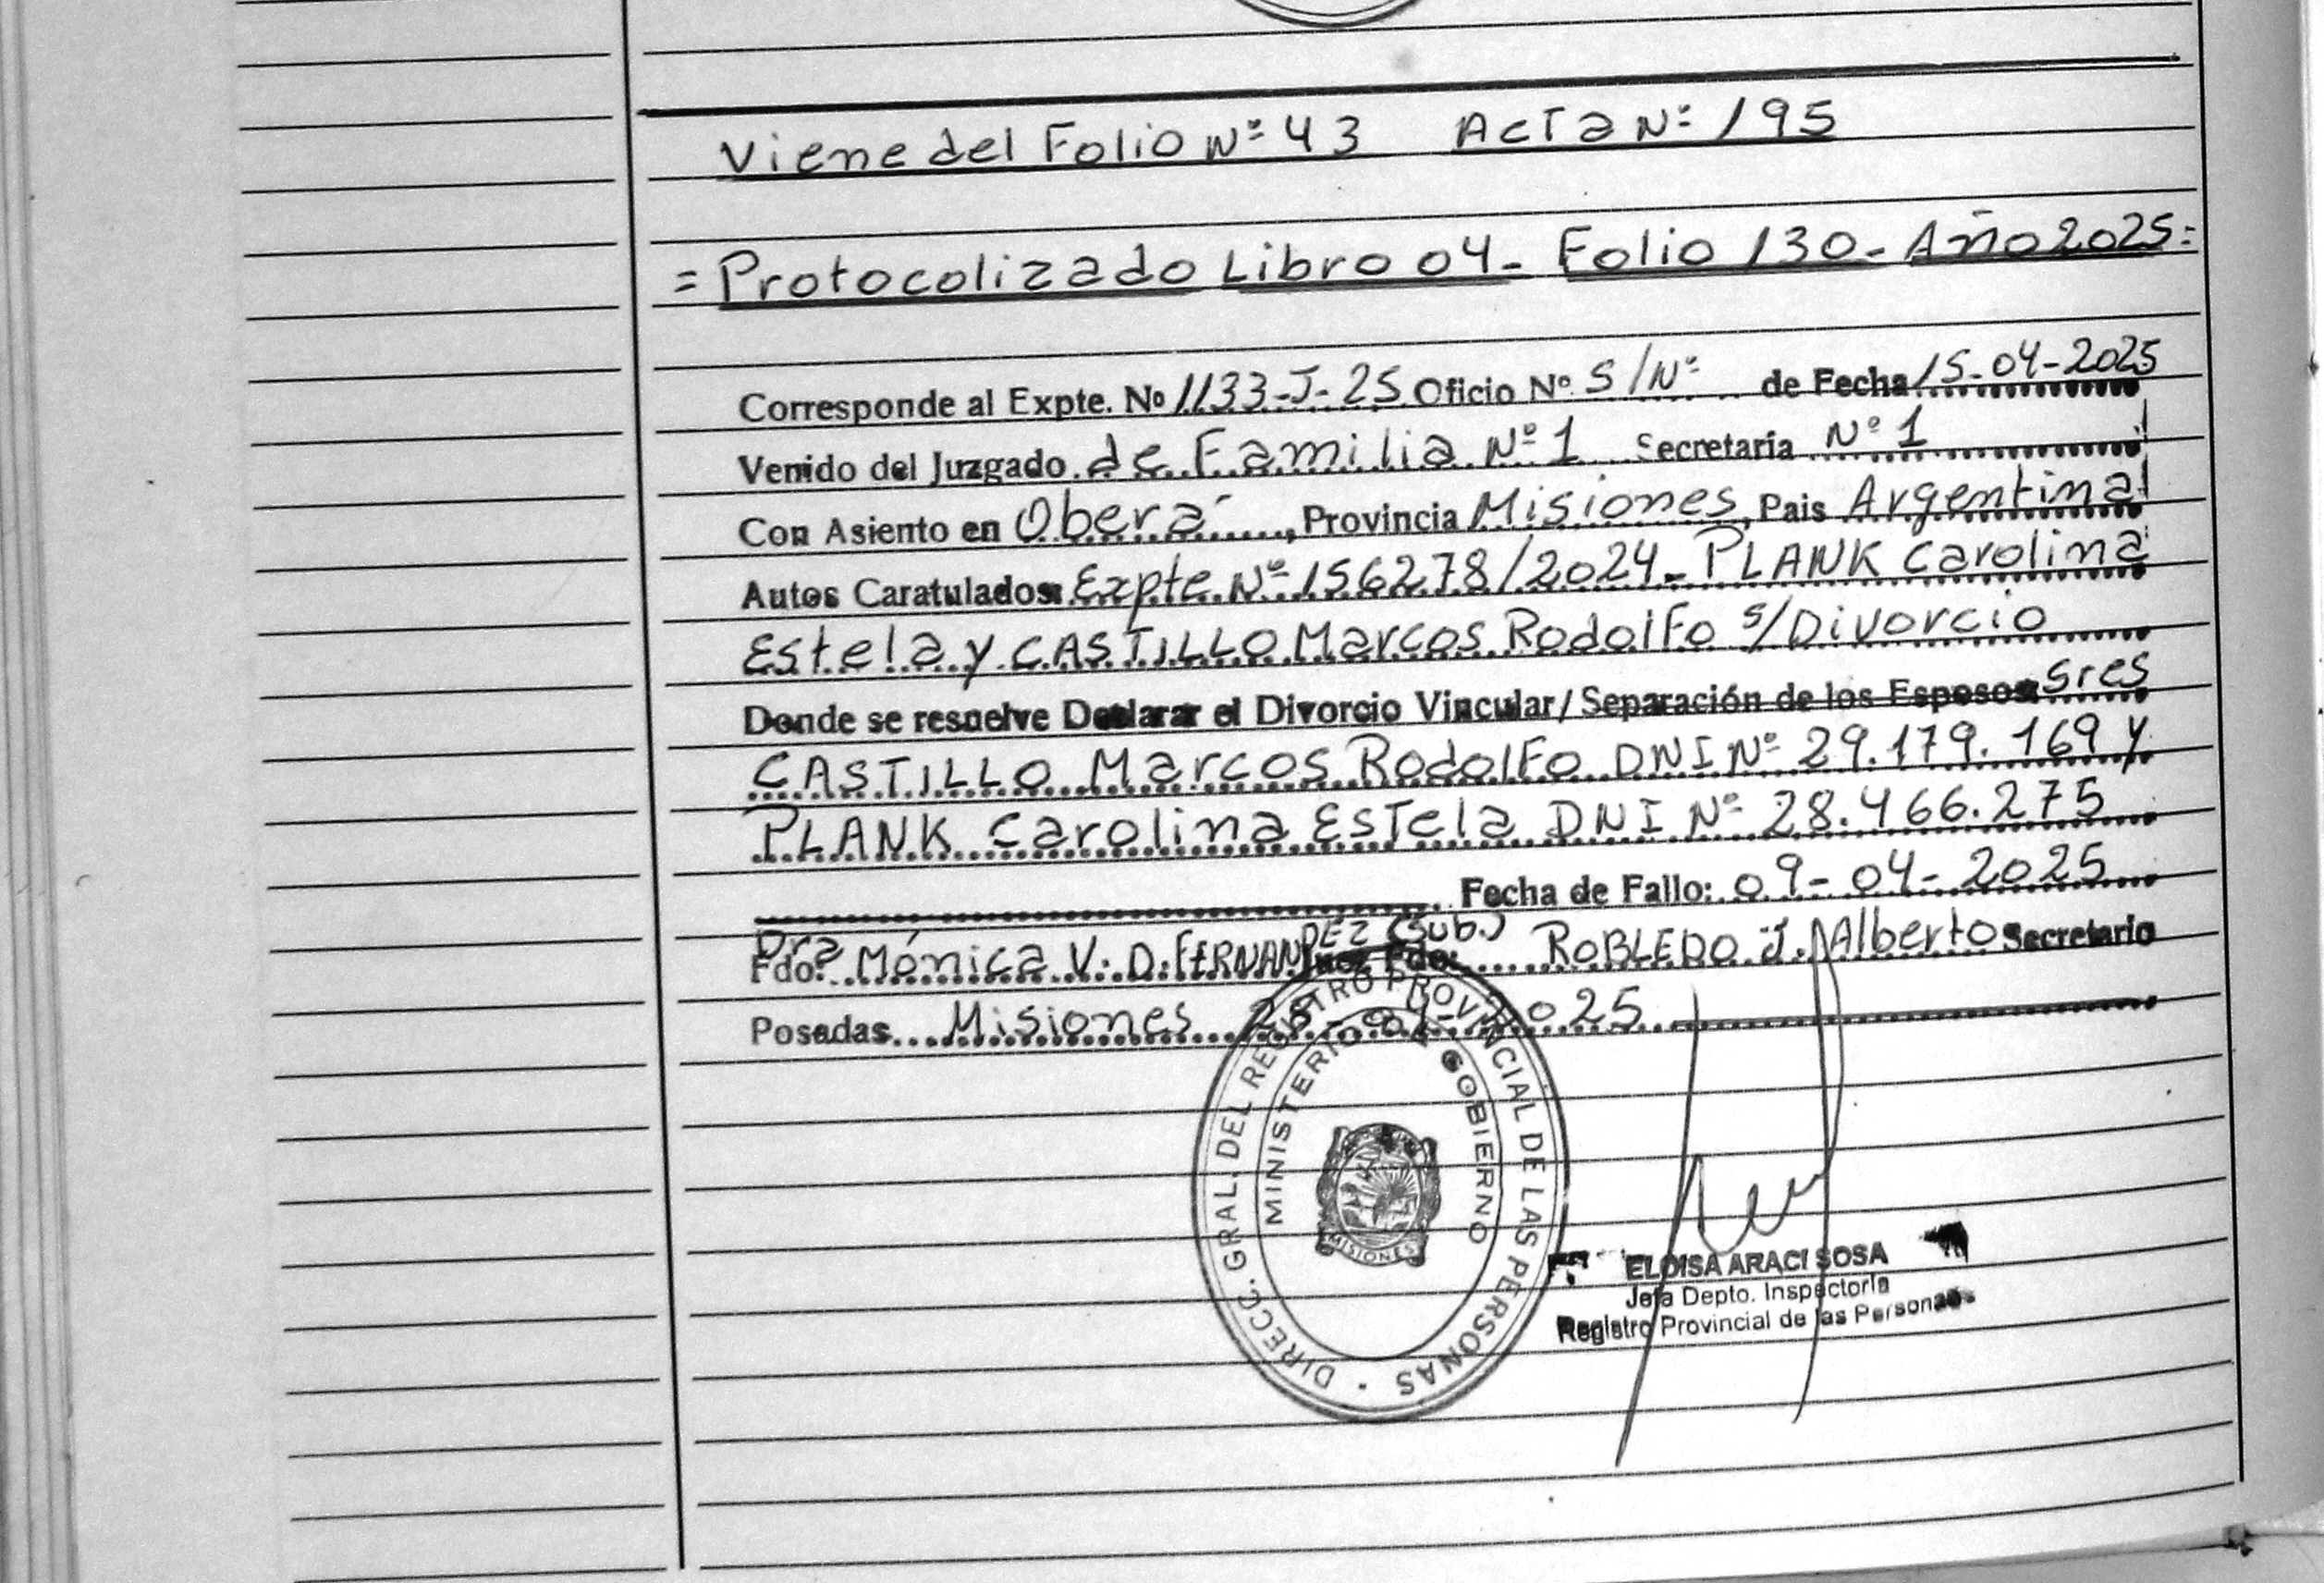 Viene del Folio Nº 43 Acta Nº 195
= Protocolizado Libro 04- Folio 130- Año 2025=
Corresponde al Expte. Nº 1133-J-25 Oficio Nº S/Nº de Fecha 15-04-2025
Venido del Juzgado de Familia Nº 1 Secretaría Nº 1
Con Asiento en Oberá, Provincia Misiones, Pais Argentina
Autos Caratulados: Expte Nº 156278/2024- PLANK Carolina
Estela y CASTILLO Marcos Rodolfo s/Divorcio
Donde se resuelve Declarar el Divorcio Vincular/Separación de los Esposos: Sres
CASTILLO Marcos Rodolfo DNI Nº 29.179.169 y
PLANK Carolina Estela DNI Nº 28.466.275
Fecha de Fallo: 09-04-2025
Fdo: Dra Mónica V. D. FERNANDEZ (Sub.) Juez Fdo: ROBLEDO J. Alberto Secretario
Posadas Misiones 2025
DIRECC. GRAL. DEL REGISTRO PROVINCIAL DE LAS PERSONAS
MINISTERIO DE GOBIERNO
MISIONES
ELOISA ARACI SOSA
Jefa Depto. Inspectoría
Registro Provincial de las Personas